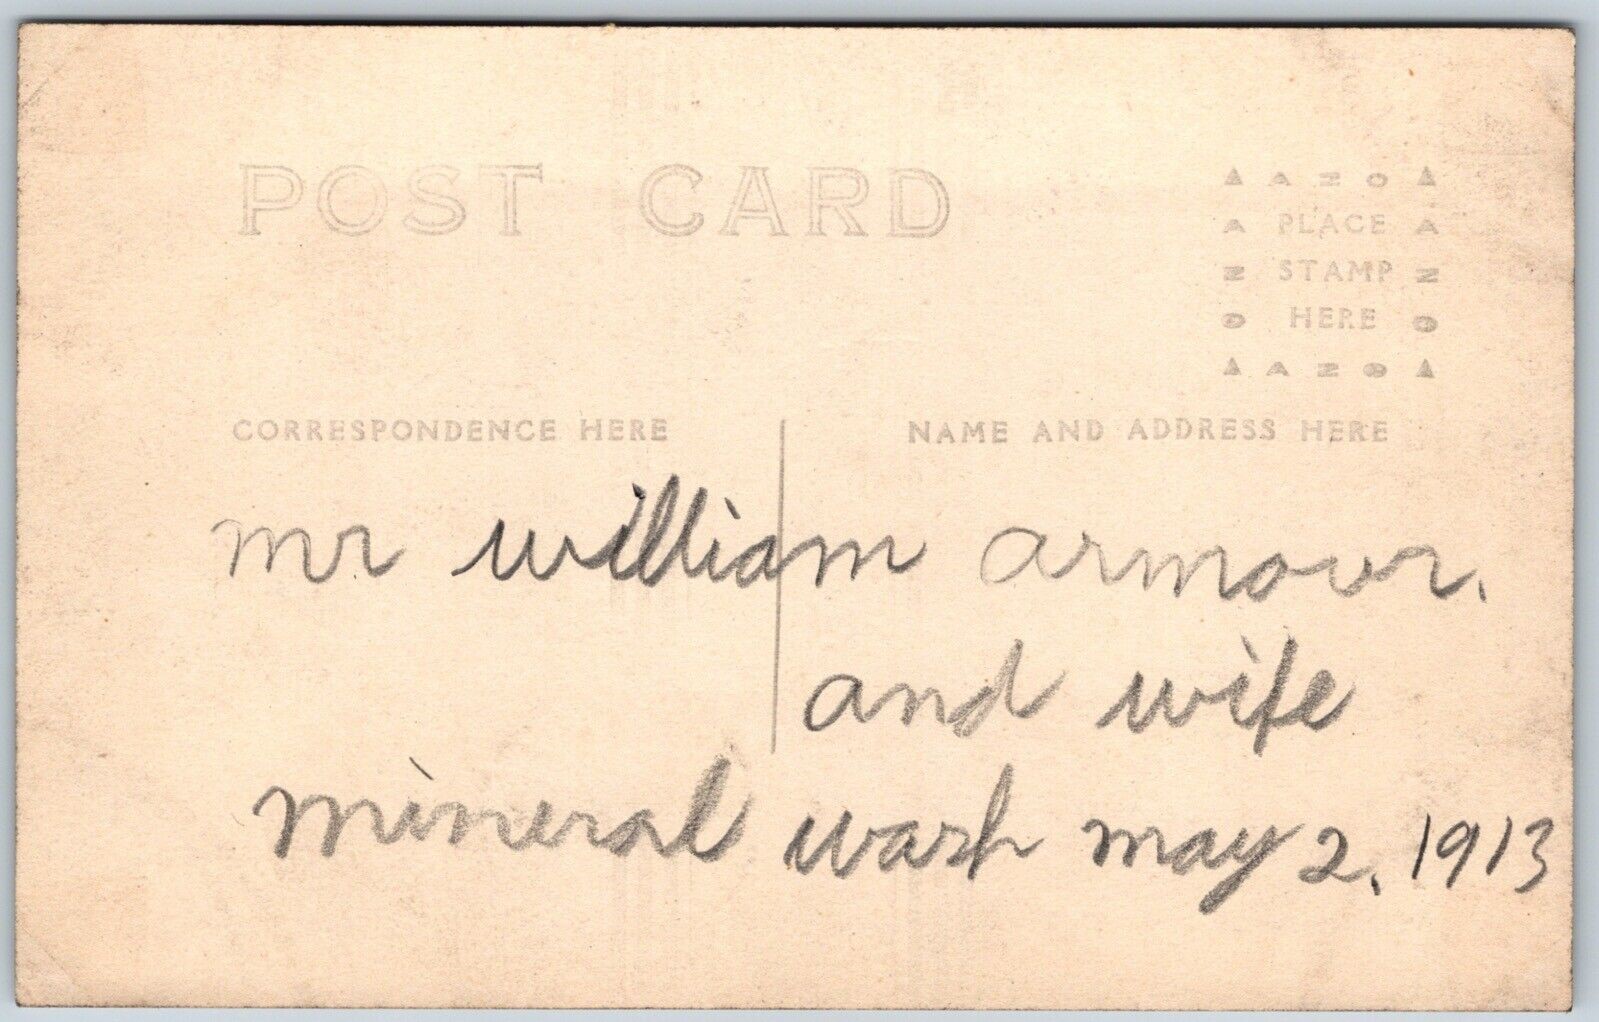 POST CARD
▲ A Z O ▲
A PLACE A
Z STAMP Z
O HERE O
▲ A Z O ▲
CORRESPONDENCE HERE
NAME AND ADDRESS HERE
mr william armour.
and wife
mineral wash may 2. 1913